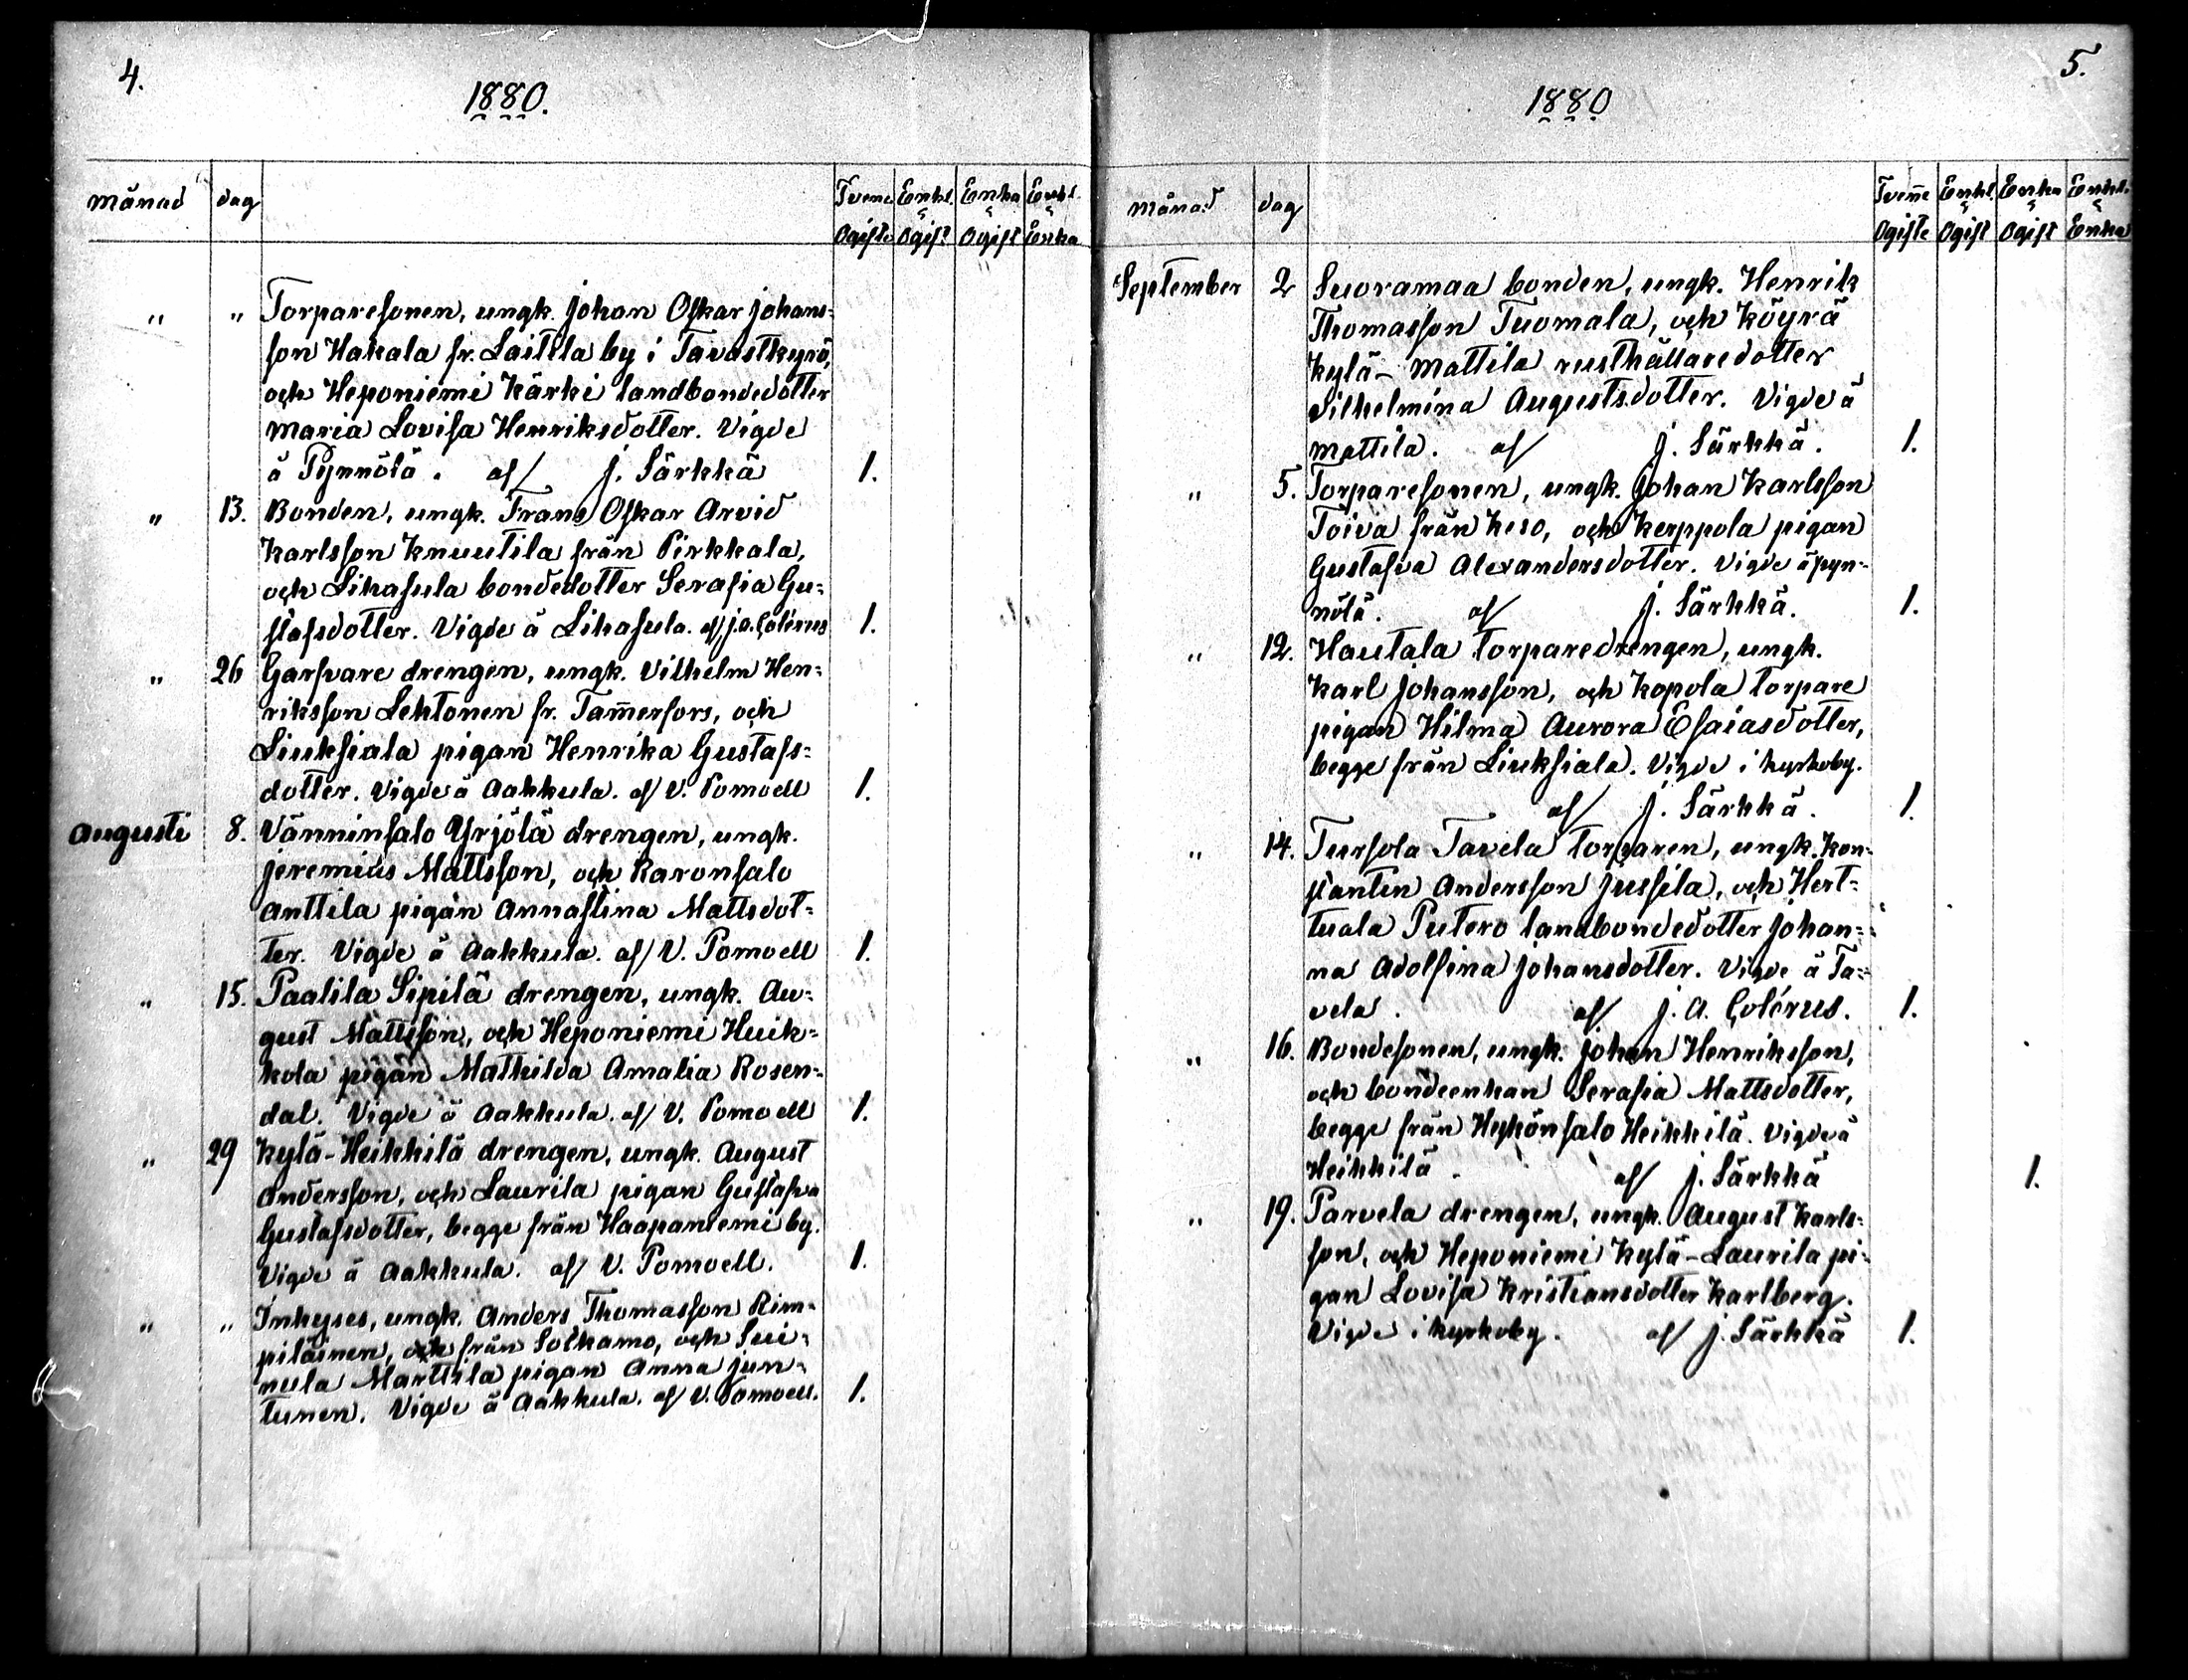 4.
1880.
månad dag Tvenne Enkl. Enka Enkl.
& & &
Ogifte Ogift Ogift Enka
" " Torparesonen, ungk. Johan Oskar Johans=
son Hakala fr. Laitila by i Tavastkyrö,
och Heponiemi Kärki landbondedotter
Maria Lovisa Henriksdotter. Vigde
å Pynnölä. af/ J. Särkkä 1.
" 13. Bonden, ungk. Frans Oskar Arvid
Karlsson Knuutila från Pirkkala,
och Lihasula bondedotter Serafia Gu=
stafsdotter. Vigde å Lihasula. af/ J. A. Colérus 1.
" 26 Garfvare drengen, ungk. Vilhelm Hen=
riksson Lehtonen fr. Tam̄erfors, och
Liuksiala pigan Henrika Gustafs=
dotter. Vigde å Aakkula. af/ V. Pomoell 1.
Augusti 8. Vänninsalo Yrjölä drengen, ungk.
Jeremias Mattsson, och Raronsalo
Anttila pigan Annastina Mattsdot=
ter. Vigde å Aakkula. af/ V. Pomoell 1.
" 15. Paalila Sipilä drengen, ungk. Au=
gust Mattsson, och Heponiemi Huik=
kola pigan Mathilda Amalia Rosen=
dal. Vigde å Aakkula. af/ V. Pomoell 1.
" 29 Kylä-Heikkilä drengen, ungk. August
Andersson, och Laurila pigan Gustafva
Gustafsdotter, begge från Haapaniemi by.
Vigde å Aakkula. af/ V. Pomoell. 1.
" " Inhyses, ungk. Anders Thomasson Rim=
piläinen, från Sotkamo, och Sui=
nula Marttila pigan Anna Jun=
tunen. Vigde å Aakkula. af/ V. Pomoell. 1.
5.
1880
Månad dag Tven̄e Enkl. Enka Enkl.
& & &
Ogifte Ogift Ogift Enka
September 2 Suoramaa bonden, ungk. Henrik
Thomasson Tuomala, och Köyrä
Kylä-Mattila rusthållaredotter
Vilhelmina Augustsdotter. Vigde å
Mattila. af/ J. Särkkä. 1.
" 5. Torparesonen, ungk. Johan Karlsson
Toiva från Keso, och Kerppola pigan
Gustafva Alexandersdotter. Vigde å Pyn=
nölä. af/ J. Särkkä. 1.
" 12. Hautala torparedrengen, ungk.
Karl Johansson, och Kopola torpare
pigan Hilma Aurora Esaiasdotter,
begge från Liuksiala. Vigde i kyrkoby.
af/ J. Särkkä. 1.
" 14. Tursola Tavela torparen, ungk. Kon=
stantin Andersson Jussila, och Hert=
tuala Putero landbondedotter Johan=
na Adolfina Johansdotter. Vigde å Ta=
vela. af/ J. A. Colérus. 1.
" 16. Bondesonen, ungk. Johan Henriksson,
och bondeenkan Serafia Mattsdotter,
begge från Heponsalo Heikkilä. Vigde å
Heikkilä. af/ J. Särkkä 1.
" 19. Parvela drengen, ungk. August Karls=
son, och Heponiemi Kylä-Laurila pi=
gan Lovisa Kristiansdotter Karlberg.
Vigde i kyrkoby. af/ J. Särkkä 1.